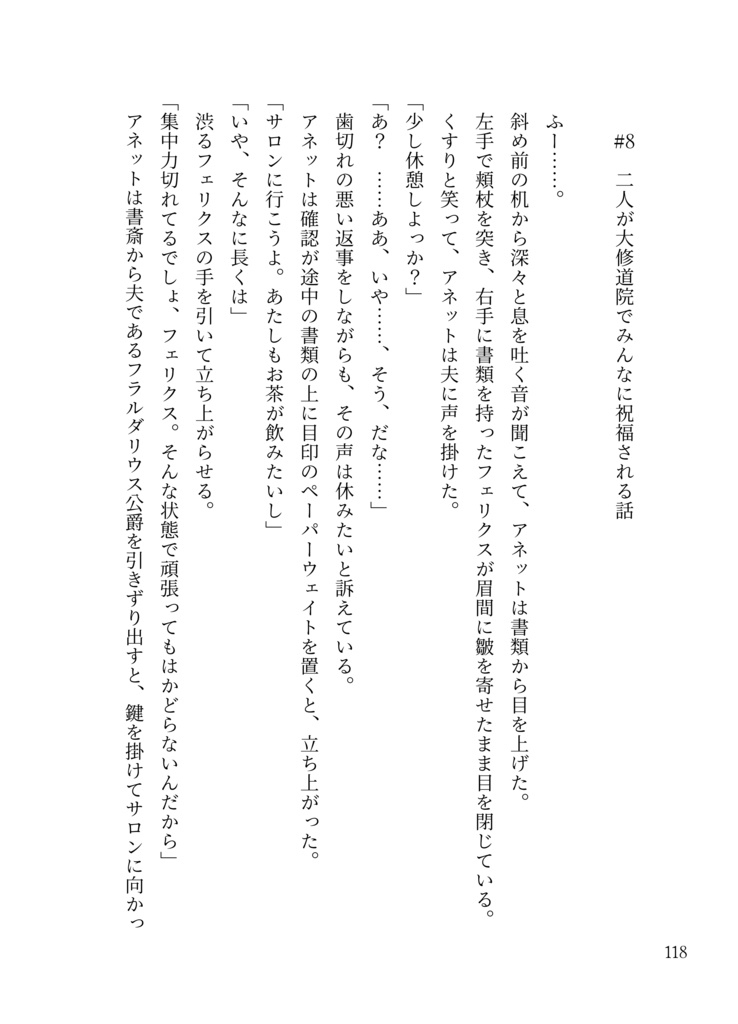 #8　二人が大修道院でみんなに祝福される話
ふー……。
斜め前の机から深々と息を吐く音が聞こえて、アネットは書類から目を上げた。
左手で頬杖を突き、右手に書類を持ったフェリクスが眉間に皺を寄せたまま目を閉じている。
くすりと笑って、アネットは夫に声を掛けた。
「少し休憩しよっか？」
「あ？　……ああ、いや……、そう、だな……」
歯切れの悪い返事をしながらも、その声は休みたいと訴えている。
アネットは確認が途中の書類の上に目印のペーパーウェイトを置くと、立ち上がった。
「サロンに行こうよ。あたしもお茶が飲みたいし」
「いや、そんなに長くは」
渋るフェリクスの手を引いて立ち上がらせる。
「集中力切れてるでしょ、フェリクス。そんな状態で頑張ってもはかどらないんだから」
アネットは書斎から夫であるフラルダリウス公爵を引きずり出すと、鍵を掛けてサロンに向かっ
118